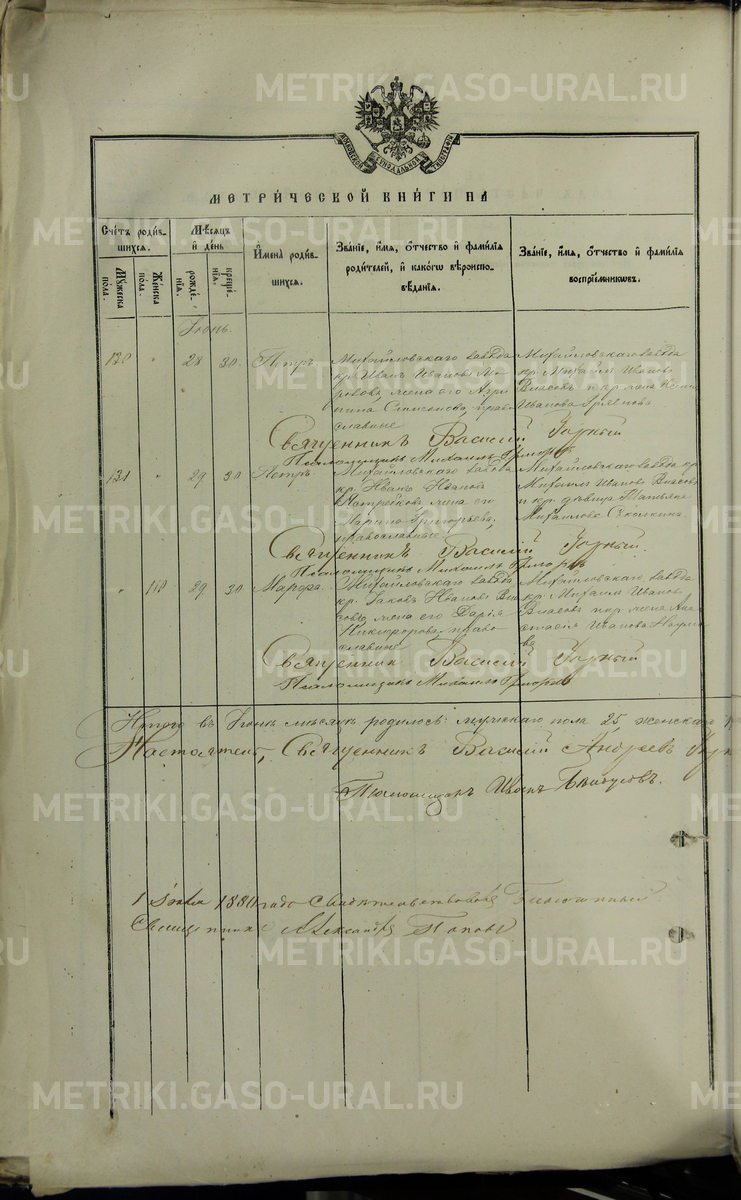 METRIKI.GASO-URAL.RU
МОСКОВСКОЙ СѴНОДАЛЬНОЙ ТИПОГРАФІИ
МЕТРИ́ЧЕСКОЙ КНИ́ГИ НА
Сче́тъ роди́в-
шихся.
Му́жеска по́ла.
Же́нска по́ла.
Мѣ́сяцъ и҆ де́нь
рожде́-
нїѧ.
креще́-
нїѧ.
И҆мена̀ роди́в-
шихся.
Зва́нїе, и҆́мѧ, ѻ҆́тчество и҆ фами́лїѧ
роди́телей, и҆ како́гѡ вѣроиспо-
вѣ́данїѧ.
Зва́нїе, и҆́мѧ, ѻ҆́тчество и҆ фами́лїѧ
воспрїе́мникѡвъ.
Іюнь.
130 " 28 30 Петръ
Михайловскаго завода
кр. Иванъ Ивановъ
жена его Агри-
пина Симеонова, право-
славные
Михайловскаго завода
кр. Михаилъ Ивановъ
Власовъ и кр. жена
Иванова
Священникъ Василій Горный
Псаломщикъ Михаилъ
131 " 29 30 Петръ
Михайловскаго завода
кр. Иванъ Ивановъ
жена его
Марина Григорьева,
православные
Михайловскаго завода кр.
Михаилъ Ивановъ Власовъ
и кр. дѣвица Татьяна
Михайлова
Священникъ Василій Горный.
Псаломщикъ Михаилъ
" 118 29 30 Марфа
Михайловскаго завода
кр. Іаковъ Ивановъ Вла-
совъ, жена его Дарія
Никифорова, право-
славные
Михайловскаго завода
кр. Михаилъ Ивановъ
Власовъ и кр. жена Ана-
стасія Иванова
Священникъ Василій Горный
Псаломщикъ Михаилъ
Итого въ Іюнѣ мѣсяцѣ родилось: мужескаго пола 25, женскаго
Настоятель, Священникъ Василій Андреевъ
Псаломщикъ
1 1880 года свидѣтельствовалъ
Священникъ Александръ Поповъ